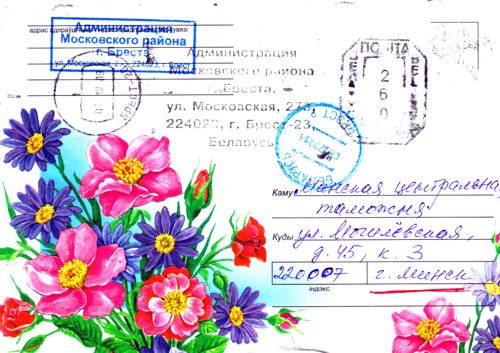 Администрация
Московского района
г. Бреста
ул. Московская,
Администрация
Московского района
г. Бреста,
ул. Московская,
224023, г. Брест-23,
Беларусь
ПОШТА
260
БЕЛАРУСЬ
Каму Минская центральная
таможня
Куды ул. Могилёвская,
д. 45, к. 3
220007 г. Минск
індэкс